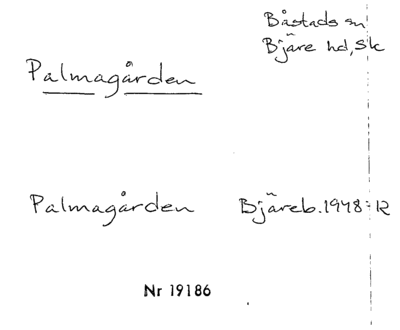 Båstads sn
Bjäre hd, Sk
Palmagården
Palmagården Bjäreb. 1948: 12
Nr 19186